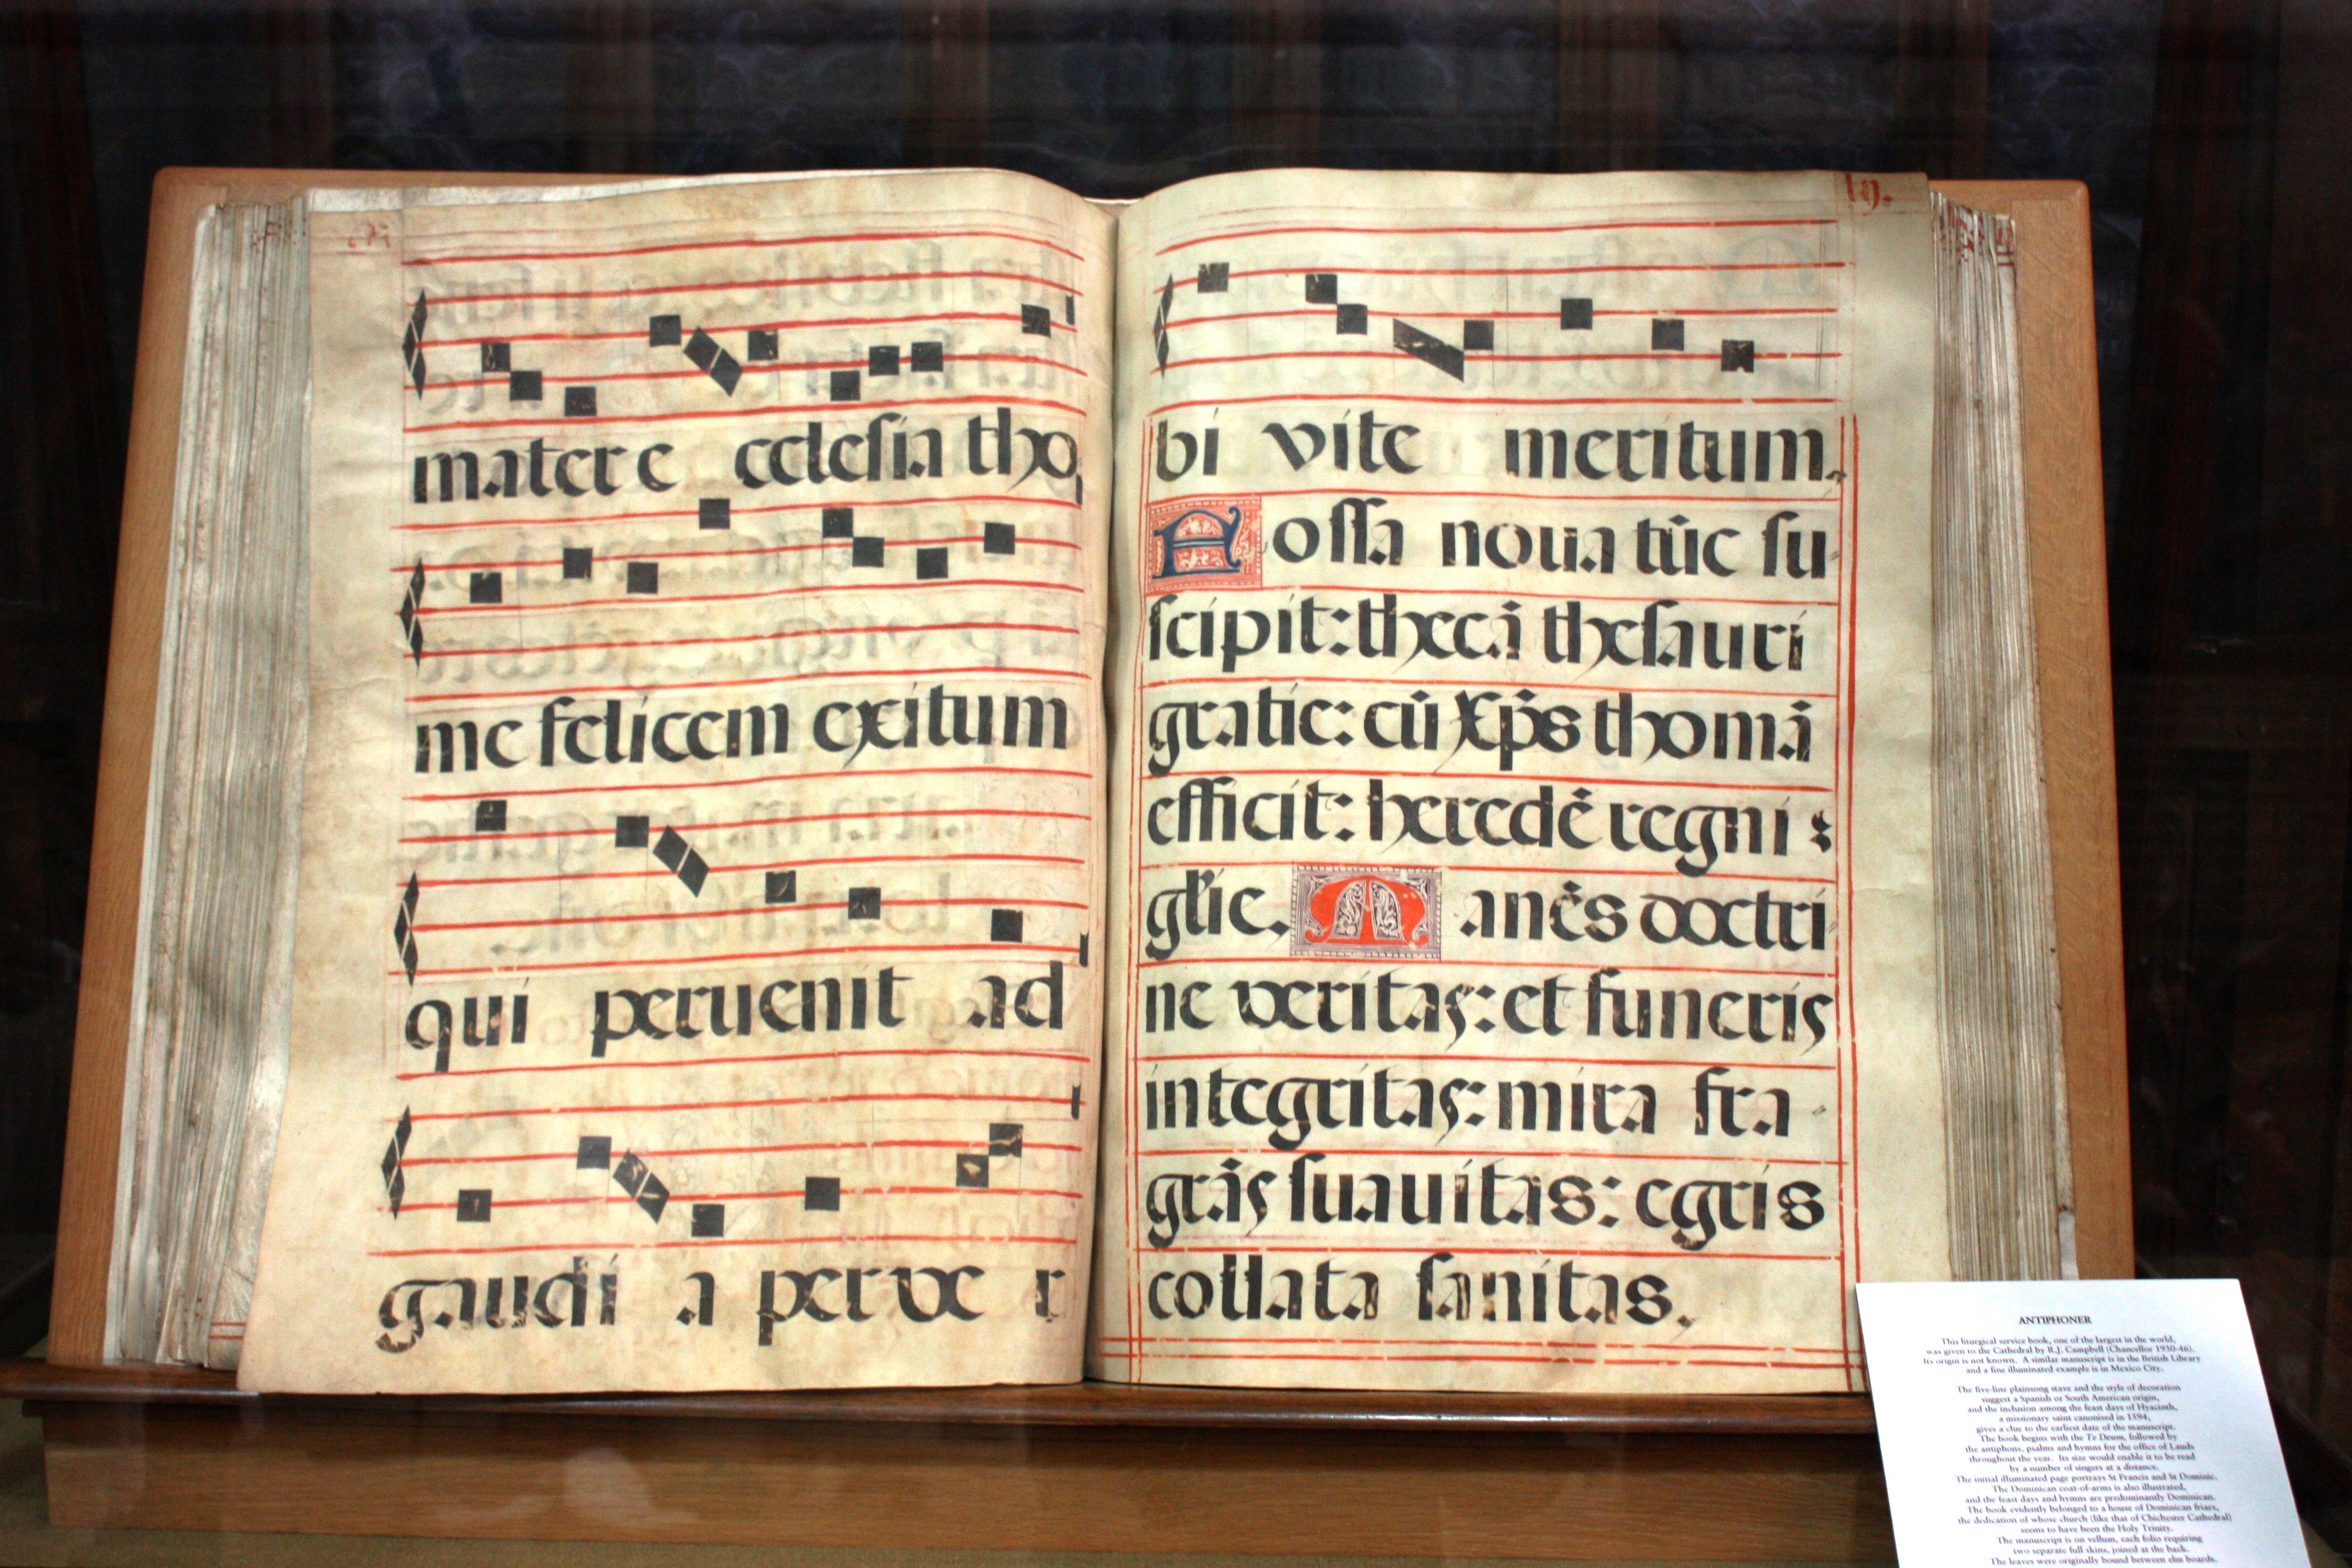 matere ecclesia tho
me felicem exitum
qui peruenit ad
gaudi a per ve r
19.
bi vite meritum.
Fossa noua tūc su
scipit: thecā thesauri
gratie: cū Xp̄s thomā
efficit: heredē regni
gl̄ie. Manēs doctri
ne veritas: et funeris
integritas: mira fra
grās suauitas: egris
collata sanitas.
ANTIPHONER
This liturgical service book, one of the largest in the world,
was given to the Cathedral by R.J. Campbell (Chancellor 1930-46).
Its origin is not known. A similar manuscript is in the British Library
and a fine illuminated example is in Mexico City.
The five-line plainsong stave and the style of decoration
suggest a Spanish or South American origin,
and the inclusion among the feast days of Hyacinth,
a missionary saint canonised in 1594,
gives a clue to the earliest date of the manuscript.
The book begins with the Te Deum, followed by
the antiphons, psalms and hymns for the office of Lauds
throughout the year. Its size would enable it to be read
by a number of singers at a distance.
The initial illuminated page portrays St Francis and St Dominic.
The Dominican coat-of-arms is also illustrated,
and the feast days and hymns are predominantly Dominican.
The book evidently belonged to a house of Dominican friars,
the dedication of whose church (like that of Chichester Cathedral)
seems to have been the Holy Trinity.
The manuscript is on vellum, each folio requiring
two separate full skins, joined at the back.
The leaves were originally bound between elm boards.